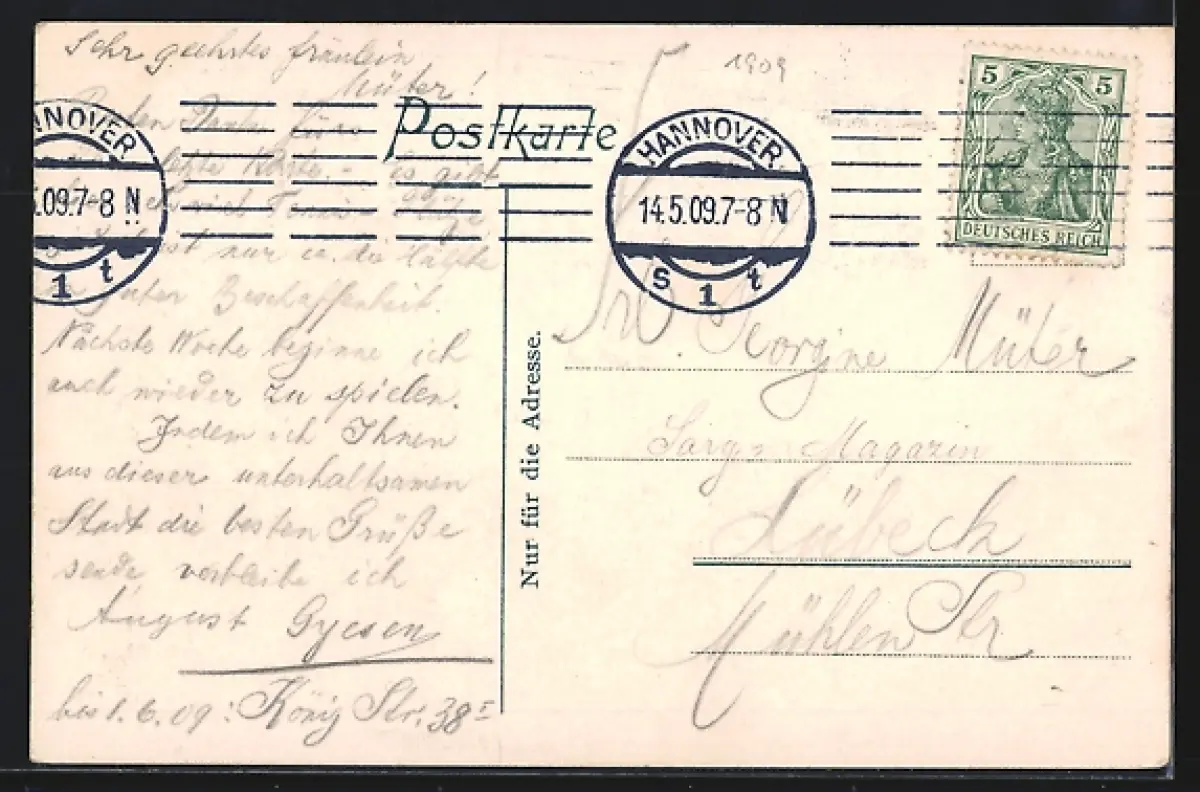 Sehr geehrtes Fräulein
Müter!
Dank für
letzte Karte. - Es gibt
viel Tennis Plätze
nur ca. die Hälfte
guter Beschaffenheit.
Nächste Woche beginne ich
auch wieder zu spielen.
Indem ich Ihnen
aus dieser unterhaltsamen
Stadt die besten Grüße
sende verbleibe ich
August Gyesen
bis 1.6.09: König Str. 38 I
1909
Postkarte
HANNOVER
.5.09.7-8 N
1 t
HANNOVER.
14.5.09.7-8 N
S 1 t
5 5
DEUTSCHES REICH
Nur für die Adresse.
Frl. Georgine Müter
Sarg-Magazin
Lübeck
Mühlen Str